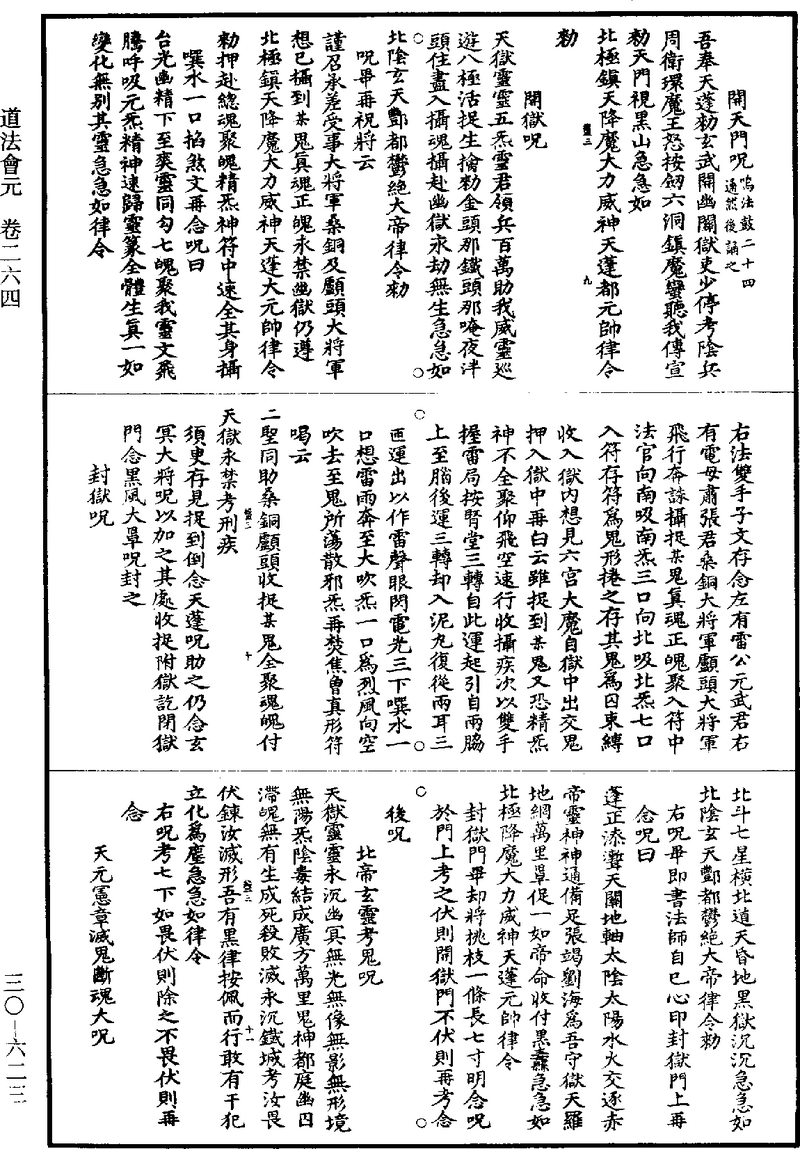 道法會元　卷二六四
三〇－六二三
開天門呪鳴法鼓二十四通然後誦之
吾奉天蓬勑玄武開幽闢獄吏少停考陰兵
周衛環魔王怒按劒六洞鎮魔蠻聽我傳宣
勑天門視黑山急急如
北極鎮天降魔大力威神天蓬都元帥律令
勑
開獄呪
天獄靈靈五炁靈君領兵百萬助我威靈巡
遊八極活捉生擒勑金頭那鐵頭那唵夜泮
頭住盡入攝魂攝赴幽獄永劫無生急急如
北陰玄天酆都鬱絶大帝律令勑
呪畢再祝將云
謹召承差受事大將軍桑銅及顧頭大將軍
想已攝到某鬼真魂正魄永禁幽獄仍遵
北極鎮天降魔大力威神天蓬大元帥律令
勑押赴總魂聚魄精炁神符中速全其身攝
噀水一口掐煞文再念呪曰
台光幽精下至爽靈同勾七魄聚我靈文飛
騰呼吸元炁精神速歸靈篆全體生真一如
變化無别其靈急急如律令
右法雙手子文存念左有雷公元武君右
有電母肅張君桑銅大將軍顧頭大將軍
飛行奔詠攝捉某鬼真魂正魄聚入符中
法官向南吸南炁三口向北吸北炁七口
入符存符爲鬼形捲之存其鬼爲囚束縛
收入獄內想見六宮大魔自獄中出交鬼
押入獄中再白云雖捉到某鬼又恐精炁
神不全聚仰飛空速行收攝疾次以雙手
握雷局按腎堂三轉自此運起引自兩脇
上至腦後運三轉却入泥丸復從兩耳三
匝運出以作雷聲眼閃電光三下噀水一
口想雷雨奔至大吹炁一口爲烈風向空
吹去至鬼所蕩散邪炁再焚焦曾真形符
喝云
二聖同助桑銅顧頭收捉某鬼全聚魂魄付
天獄永禁考刑疾
須臾存見捉到倒念天蓬呪助之仍念玄
冥大將呪以加之其處收捉附獄訖閉獄
門念黑風大罩呪封之
封獄呪
北斗七星橫北道天昏地黑獄沉沉急急如
北陰玄天酆都鬱絶大帝律令勑
右呪畢即書法師自已心印封獄門上再
念呪曰
蓬正添瀺天關地軸太陰太陽水火交逐赤
帝靈神神通備足張竭劉海爲吾守獄天羅
地網萬里罩促一如帝命收付黑纛急急如
北極降魔大力威神天蓬元帥律令
封獄門畢却將桃枝一條長七寸明念呪
於門上考之伏則開獄門不伏則再考念
後呪
北帝玄靈考鬼呪
天獄靈靈永沉幽冥無光無像無影無形境
無陽炁陰毒結成廣方萬里鬼神都庭幽囚
滯魄無有生成死殺敗滅永沉鐵城考汝畏
伏鍊汝滅形吾有黑律按佩而行敢有干犯
立化爲塵急急如律令
右呪考七下如畏伏則除之不畏伏則再
念
天元憲章滅鬼斷魂大呪